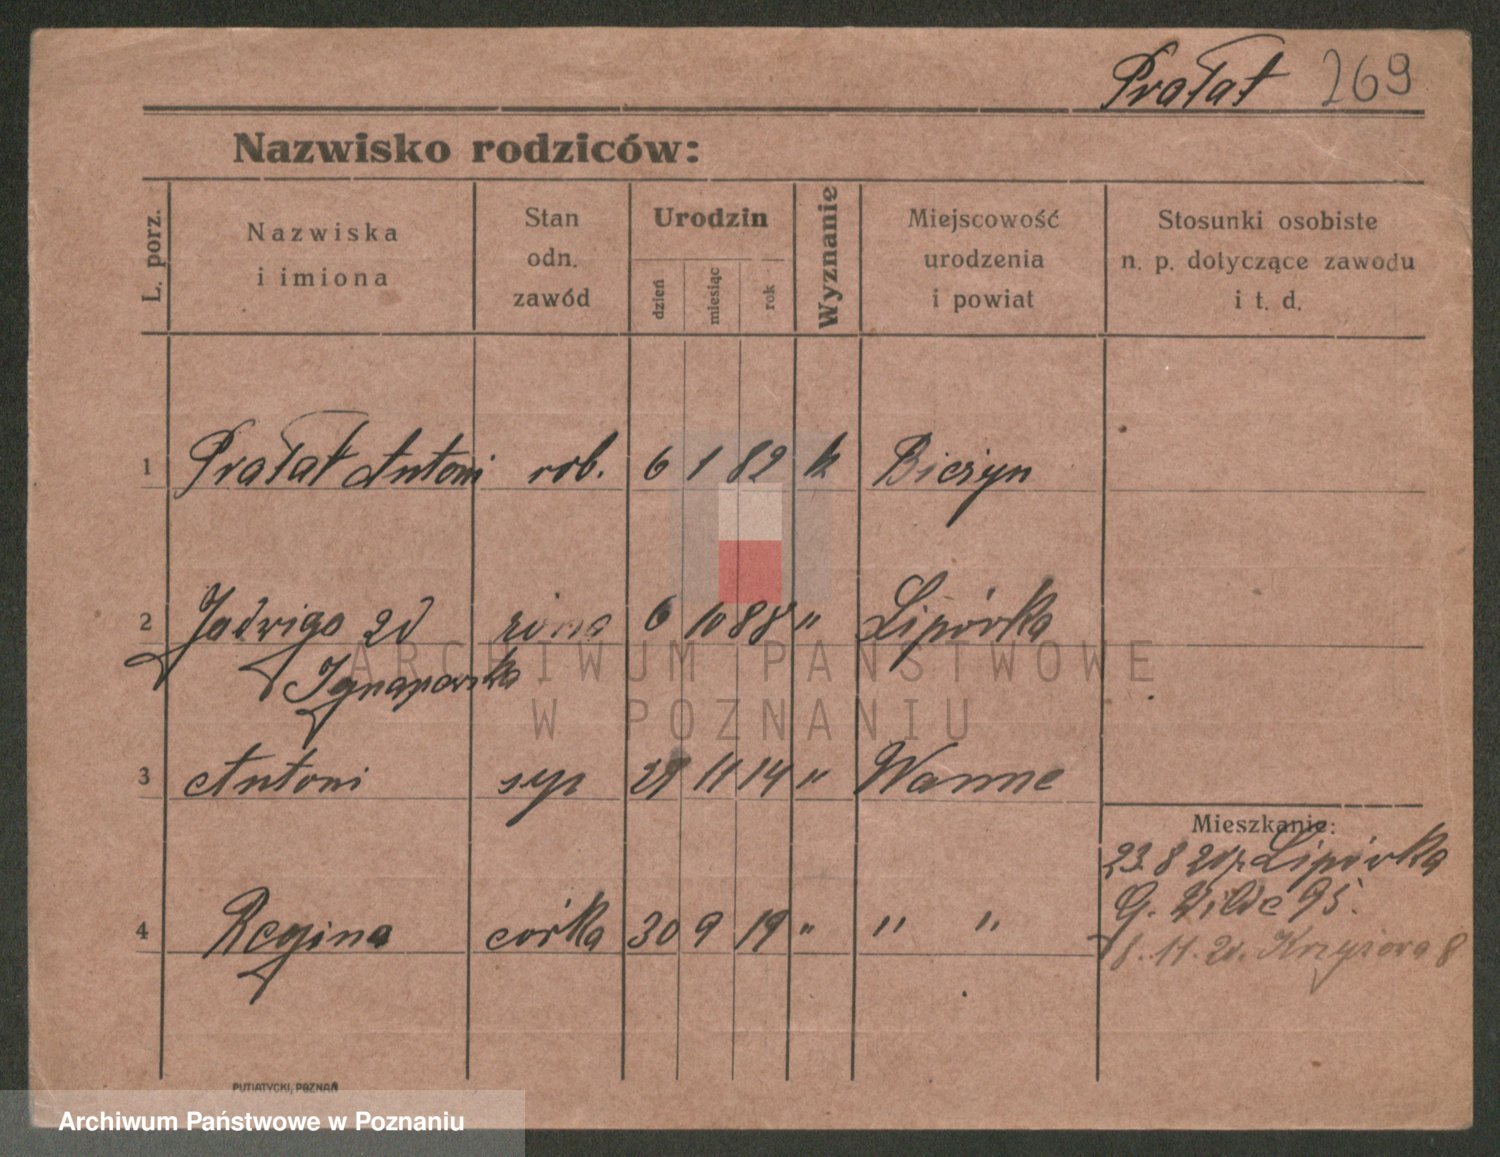 Prałat 269
Nazwisko rodziców:
L. porz.
Nazwiska
i imiona
Stan
odn.
zawód
Urodzin
dzień
miesiąc
rok
Wyznanie
Miejscowość
urodzenia
i powiat
Stosunki osobiste
n. p. dotyczące zawodu
i t. d.
1 Prałat Antoni rob. 6 1 82 k
2 Jadwiga zd żona 6 10 88 " Lipówka
ARCHIWUM PAŃSTWOWE
W POZNANIU
3 Antoni syn 29 11 14 " Wanne
Mieszkanie:
23. 8 20 Lipówka
G. Wilde 95.
4 Regina córka 30 9 19 " " "
8. 11. 20. Krzyżowa 8
PUTIATYCKI, POZNAŃ
Archiwum Państwowe w Poznaniu